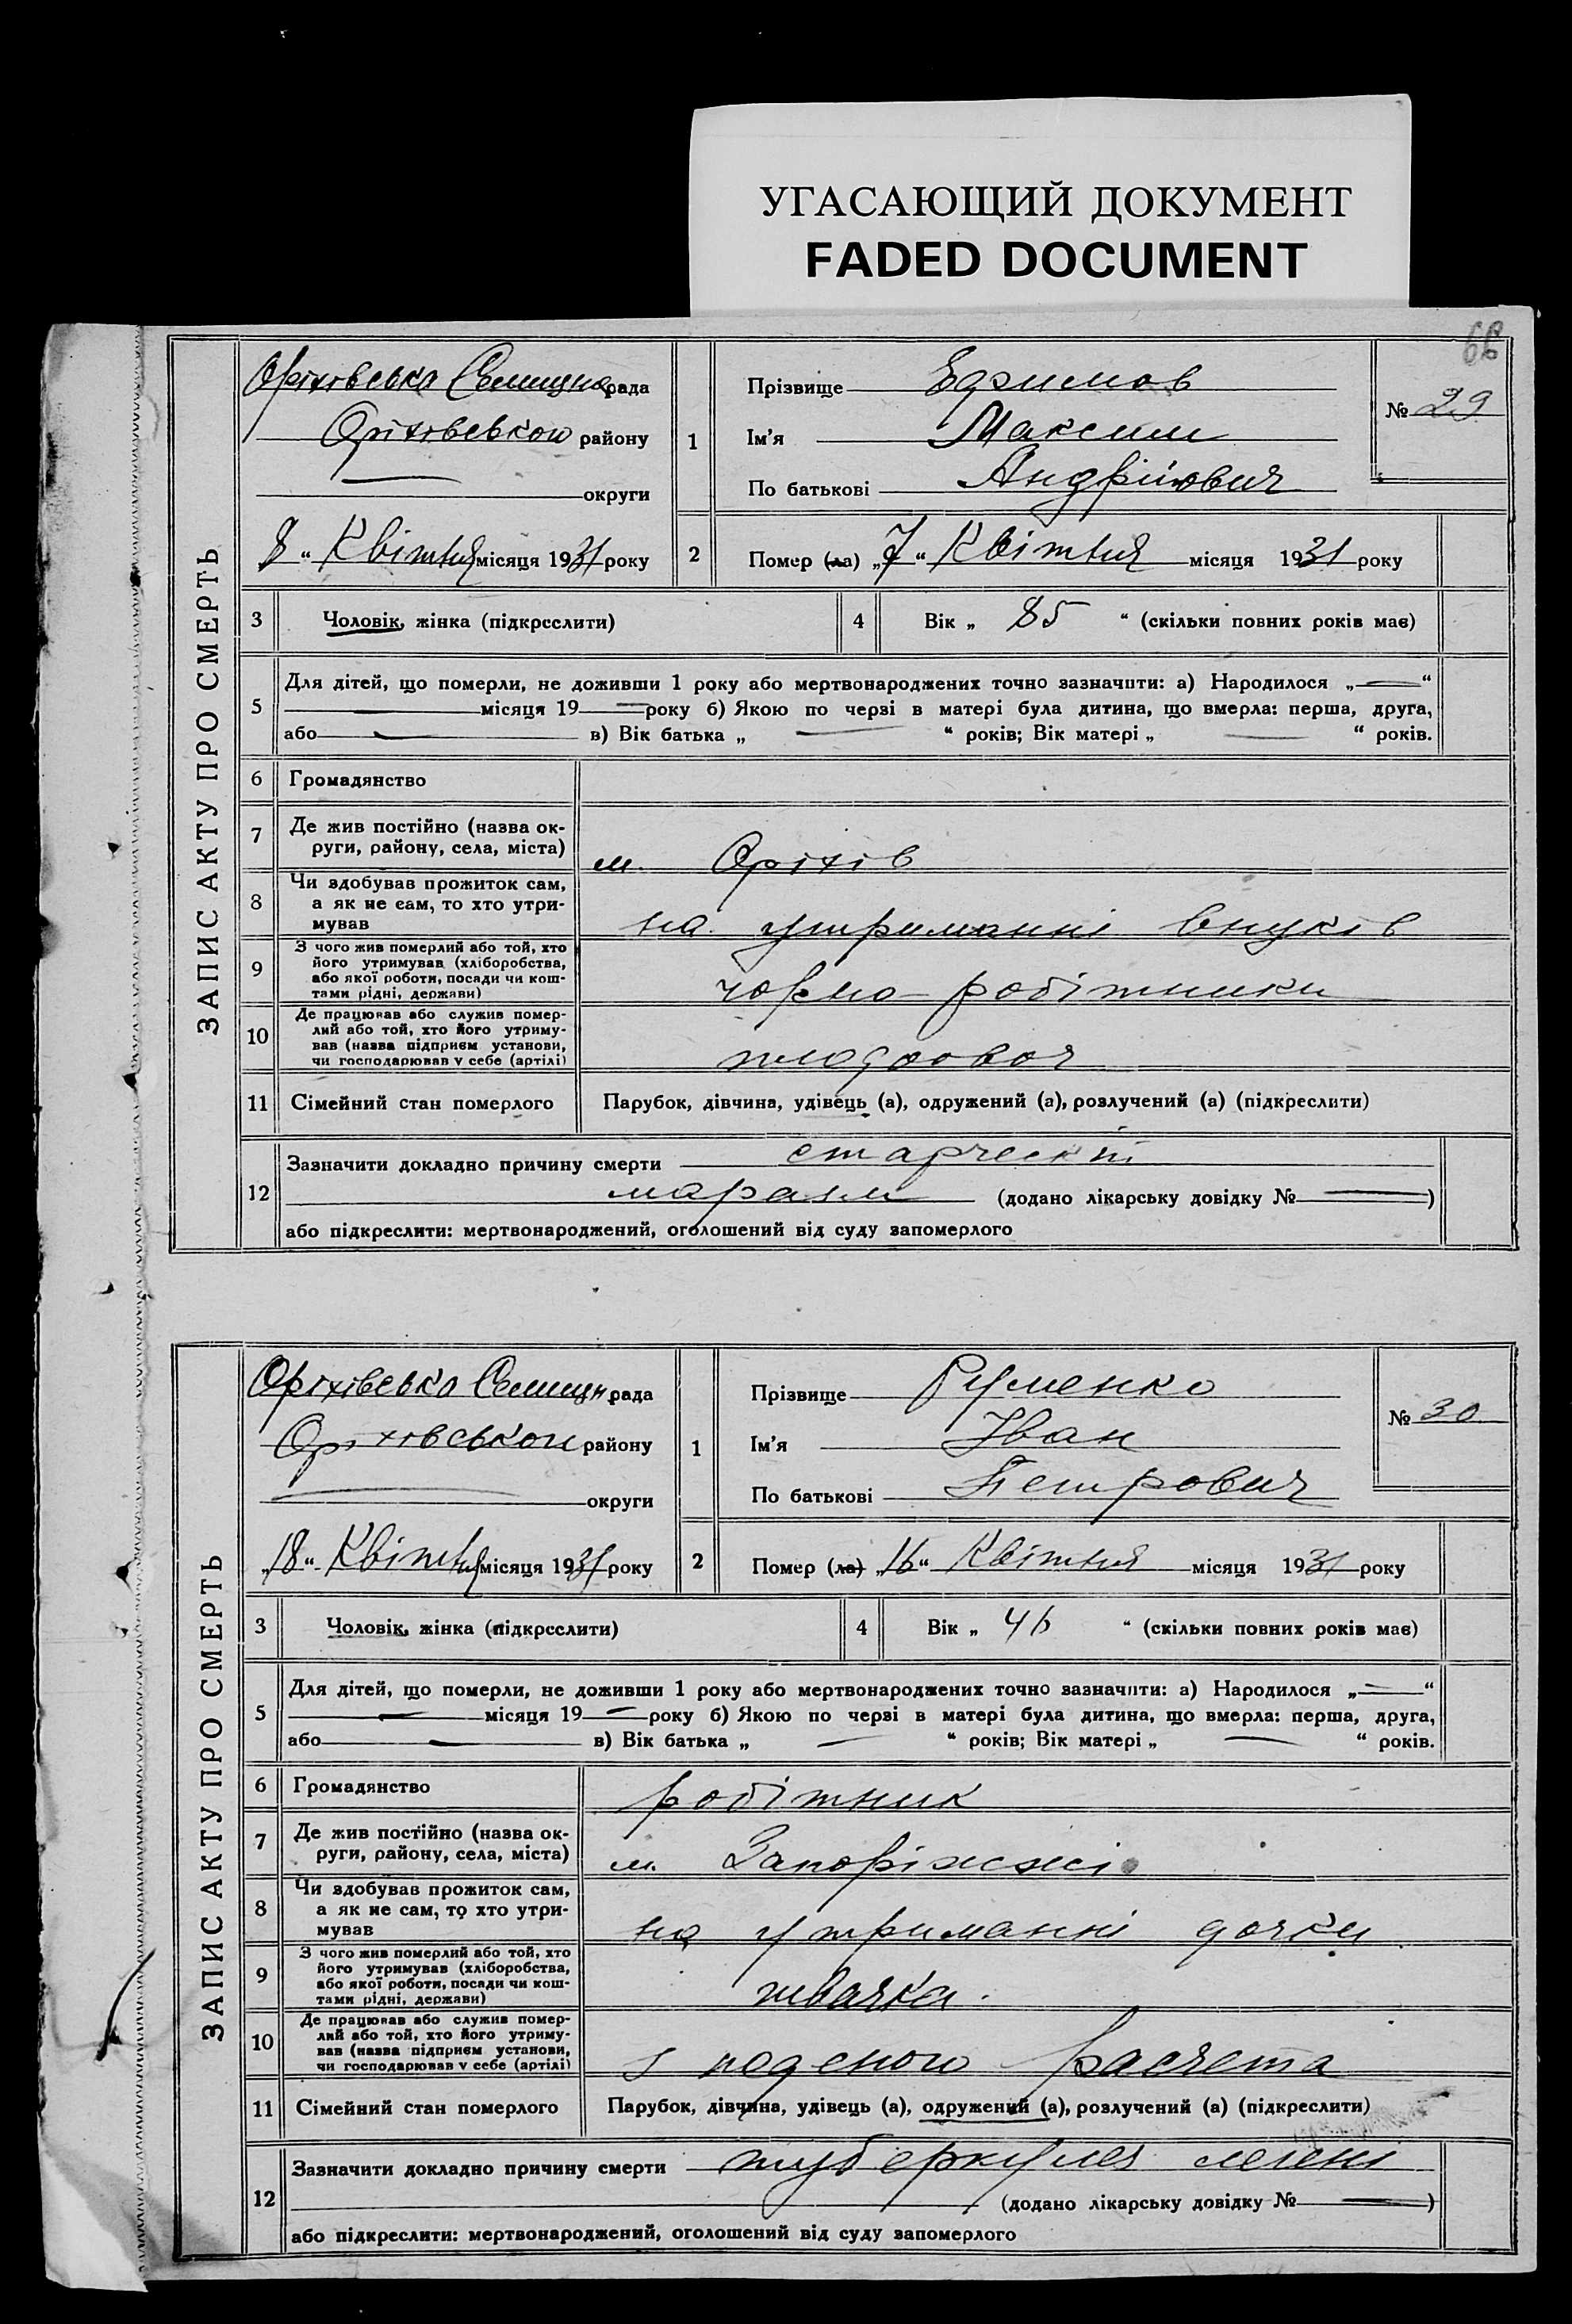 УГАСАЮЩИЙ ДОКУМЕНТ
FADED DOCUMENT
66
ЗАПИС АКТУ ПРО СМЕРТЬ
Оріхівська Селищна рада
Оріхівського району
округи
8 " Квітня місяця 1931 року
1
Прізвище Ефимов
Ім'я Максим
По батькові Андрійович
№ 29
2 Помер (ла) „7 " Квітня місяця 1931 року
3 Чоловік, жінка (підкреслити)
4 Вік „ 85 " (скільки повних років має)
5 Для дітей, що померли, не доживши 1 року або мертвонароджених точно зазначити: а) Народилося „ — "
— місяця 19 — року б) Якою по черзі в матері була дитина, що вмерла: перша, друга,
або — в) Вік батька „ — " років; Вік матері „ — " років.
6 Громадянство
7 Де жив постійно (назва ок-
руги, району, села, міста)
м. Оріхів
8 Чи здобував прожиток сам,
а як не сам, то хто утри-
мував
на утриманні внуків
9 З чого жив померлий або той, хто
його утримував (хліборобства,
або якої роботи, посади чи кош-
тами рідні, держави)
чорно-робітники
10 Де працював або служив помер-
лий або той, хто його утриму-
вав (назва підприєм установи,
чи господарював у себе (артілі)
11 Сімейний стан померлого
Парубок, дівчина, удівець (а), одружений (а), розлучений (а) (підкреслити)
12 Зазначити докладно причину смерти старческій
маразм (додано лікарську довідку № — )
або підкреслити: мертвонароджений, оголошений від суду запомерлого
ЗАПИС АКТУ ПРО СМЕРТЬ
Оріхівська Селищн рада
Оріхівського району
округи
„18 " Квітня місяця 1931 року
1
Прізвище Руменко
Ім'я Іван
По батькові Петрович
№ 30
2 Помер (ла) „16 " Квітня місяця 1931 року
3 Чоловік, жінка (підкреслити)
4 Вік „ 46 " (скільки повних років має)
5 Для дітей, що померли, не доживши 1 року або мертвонароджених точно зазначити: а) Народилося „ — "
— місяця 19 — року б) Якою по черзі в матері була дитина, що вмерла: перша, друга,
або — в) Вік батька „ — " років; Вік матері „ — " років.
6 Громадянство робітник
7 Де жив постійно (назва ок-
руги, району, села, міста)
м. Запоріжжі
8 Чи здобував прожиток сам,
а як не сам, то хто утри-
мував
на утриманні дочки
9 З чого жив померлий або той, хто
його утримував (хліборобства,
або якої роботи, посади чи кош-
тами рідні, держави)
швачка.
10 Де працював або служив помер-
лий або той, хто його утриму-
вав (назва підприєм установи,
чи господарював у себе (артілі)
з поденого расчета
11 Сімейний стан померлого
Парубок, дівчина, удівець (а), одружений (а), розлучений (а) (підкреслити)
12 Зазначити докладно причину смерти туберкулез легені
(додано лікарську довідку № — )
або підкреслити: мертвонароджений, оголошений від суду запомерлого